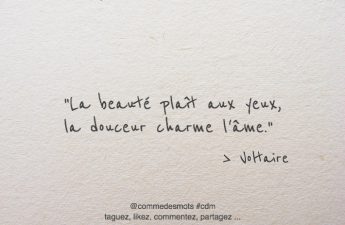 "La beauté plaît aux yeux,
la douceur charme l'âme."
> Voltaire
@commedesmots #cdm
taguez, likez, commentez, partagez ...